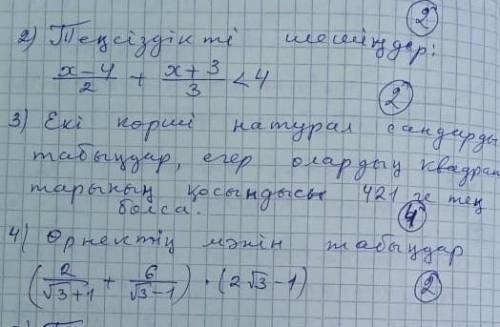 2
2) Теңсіздікті шешіңдер:
(x-4)/2 + (x+3)/3 < 4
2
3) Екі көрші натурал сандарды
табыңдар, егер олардың квадрат
тарының қосындысы 421 ге тең
болса.
4
4) Өрнектің мәнін табыңдар
(2/(√3+1) + 6/(√3-1)) · (2√3-1)
2